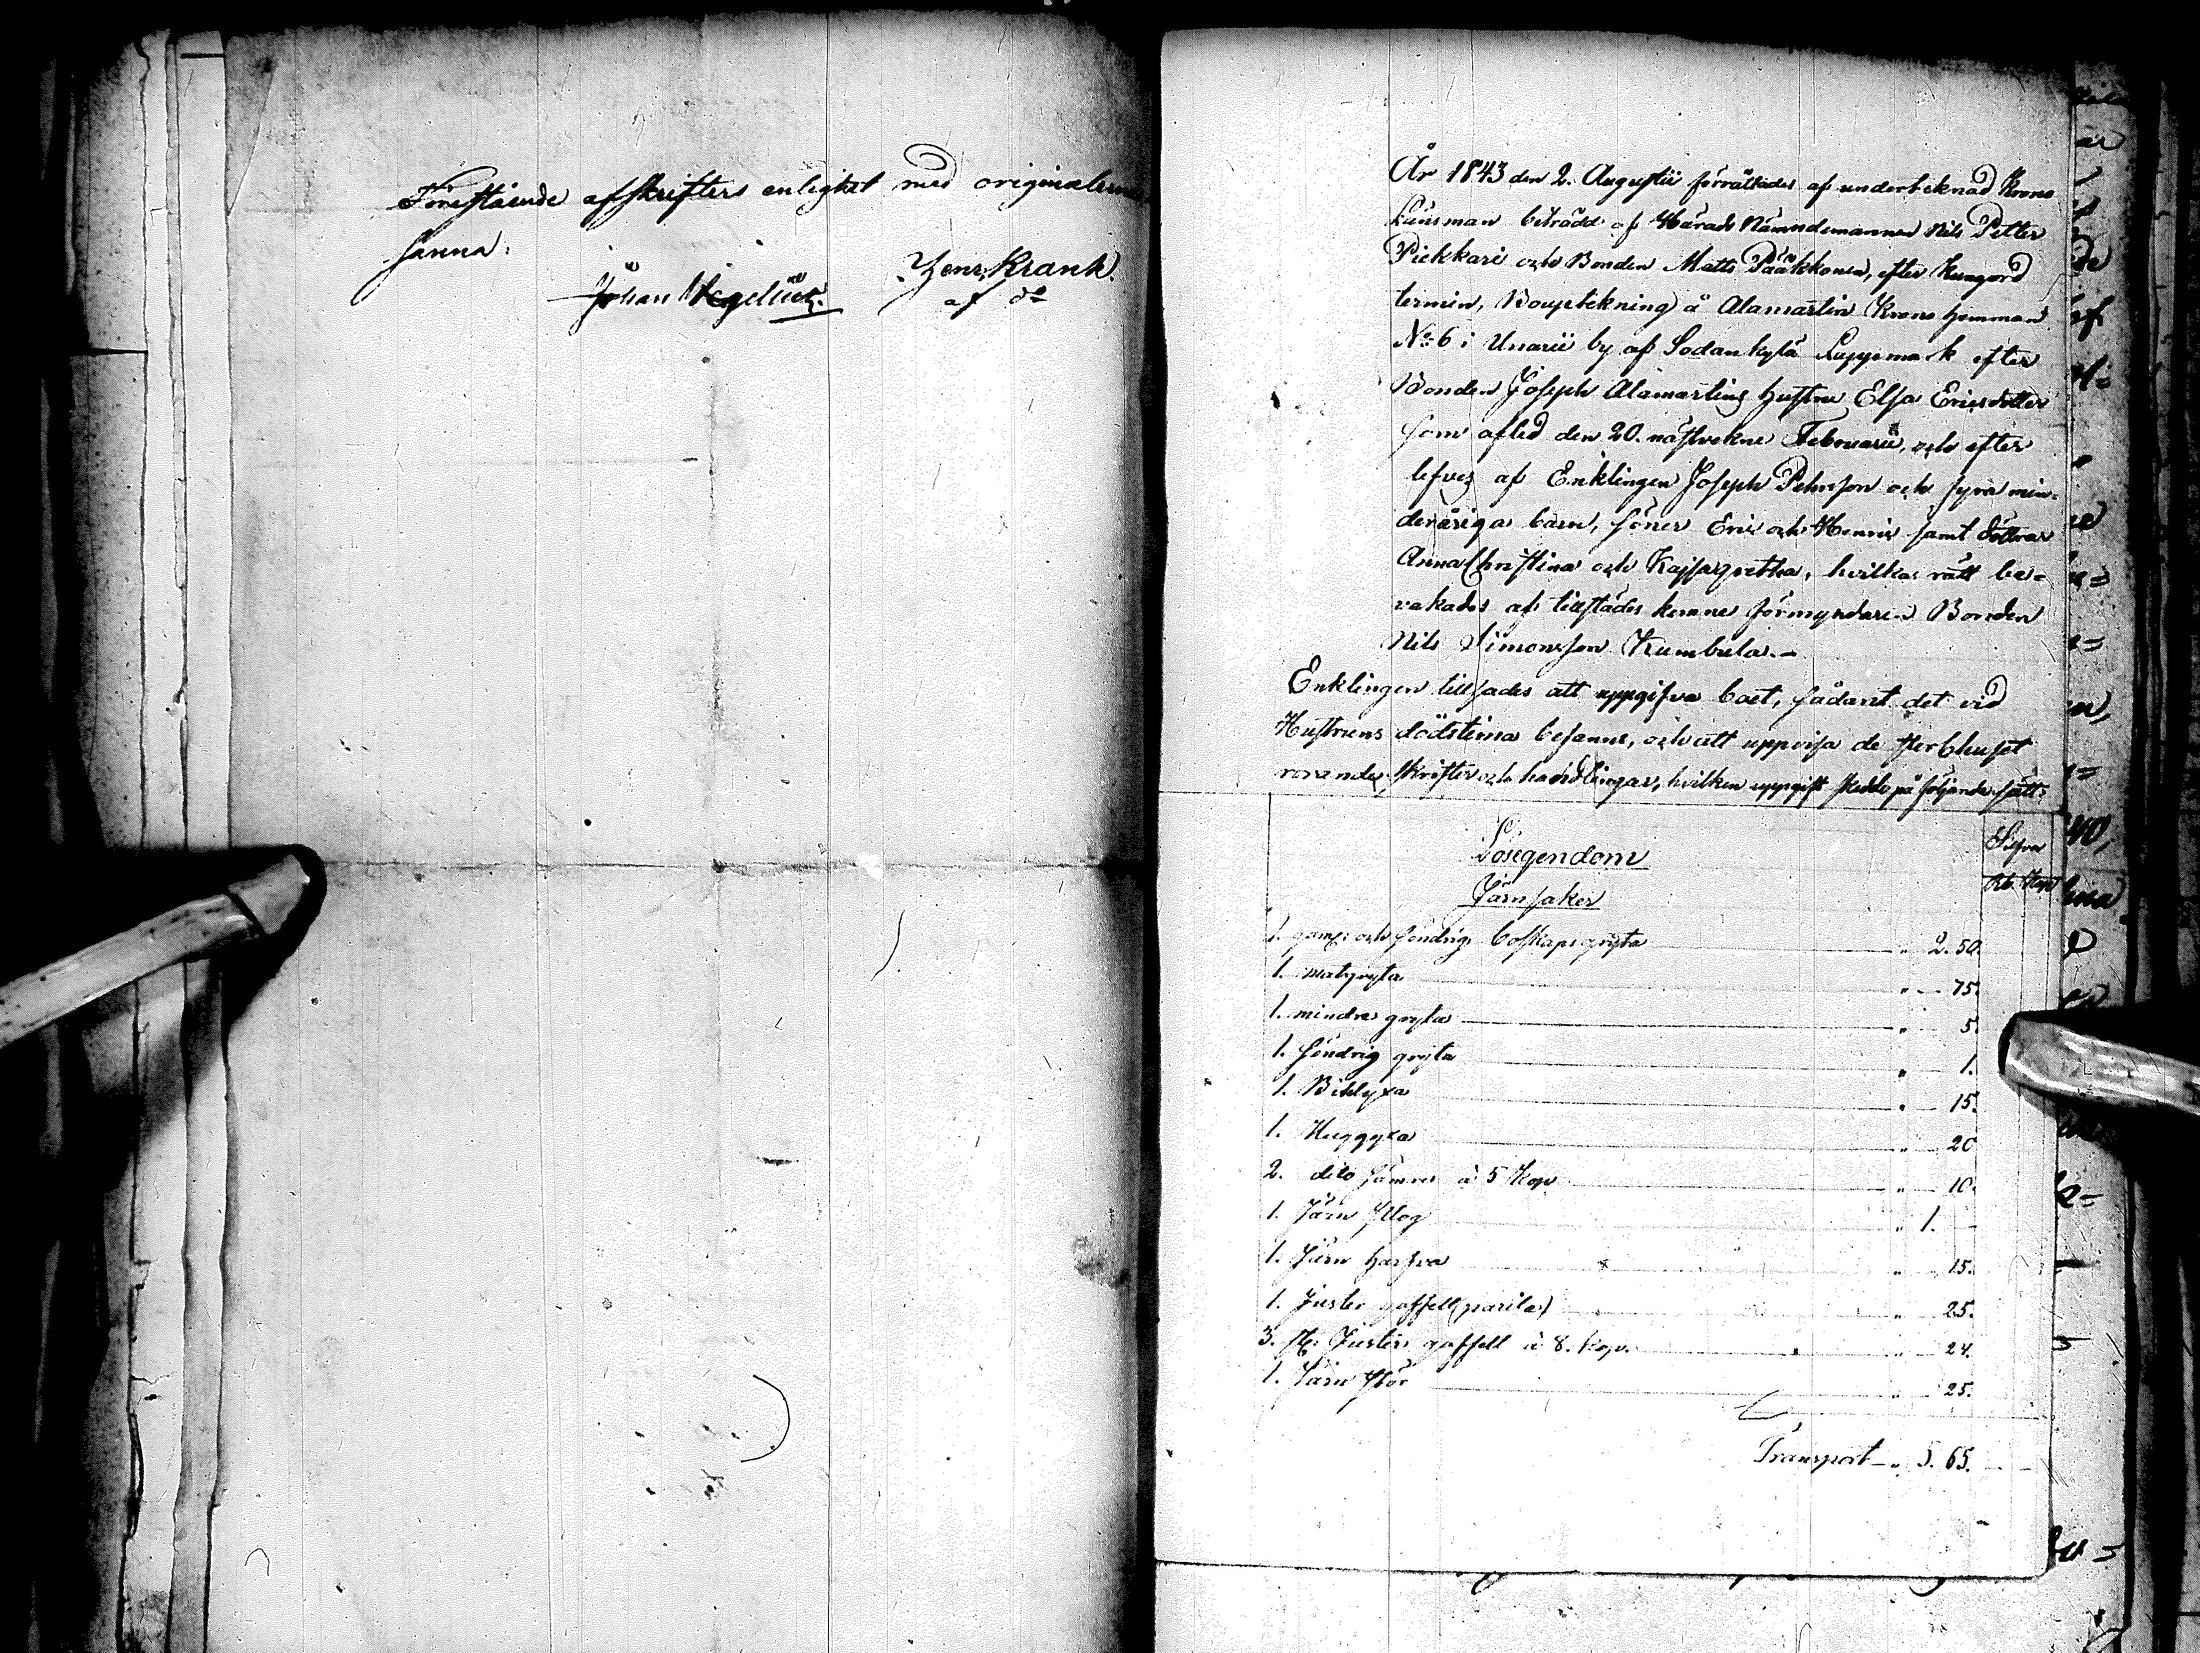 Förestående afskrifters enlighet med originalerne
sanna:
Johan Wegelius. Henr. Krank.
af do
År 1843 den 2. Augustii förrättades af undertecknad Krono
Länsman biträdd af Härads Nämndemannen Nils Petter
Piekkari och Bonden Matts Pääkkönen, efter kungord
termin, Boupteckning å Alamartin Krono hemman
No 6 i Unarii by af Sodankylä Lappmark efter
Bonden Joseph Alamartins hustru Elsa Ericsdotter
som afled den 20. nästvekne Februarii, och efter
lefves af Enklingen Joseph Pehrsson och fyra min-
deråriga barn, söner Eric och Henric samt döttrar
Anna Christina och Kajsa Gretha, hvilkas rätt be-
vakades af tillstädes komne förmyndaren Bonden
Nils Simonsson Kumbula.-
Enklingen tillsades att uppgifva boet, sådant det vid
Hustruns dödstima befanns, och att uppvisa de sterbhuset
rörande skrifter och handlingar, hvilken uppgift skedde på följande sätt:
Lösegendom
Silfver
Järnsaker
Rb. Kop
1. gam: och söndrig boskapsgryta " 2. 50.
1. matgryta " 75.
1. mindre gryta " 5.
1. söndrig gryta " 1.
1. Bihlyxa " 15.
1. Huggyxa " 20
2. dito sämre à 5 Kop " 10.
1. Järn plog " 1. -
1. Järn harfva " 15.
1. Juster gaffell (parila) " 25.
3. st: Juster gaffell à 8. kop. " 24.
1. Järn stör " 25.
Transport " 5. 65.